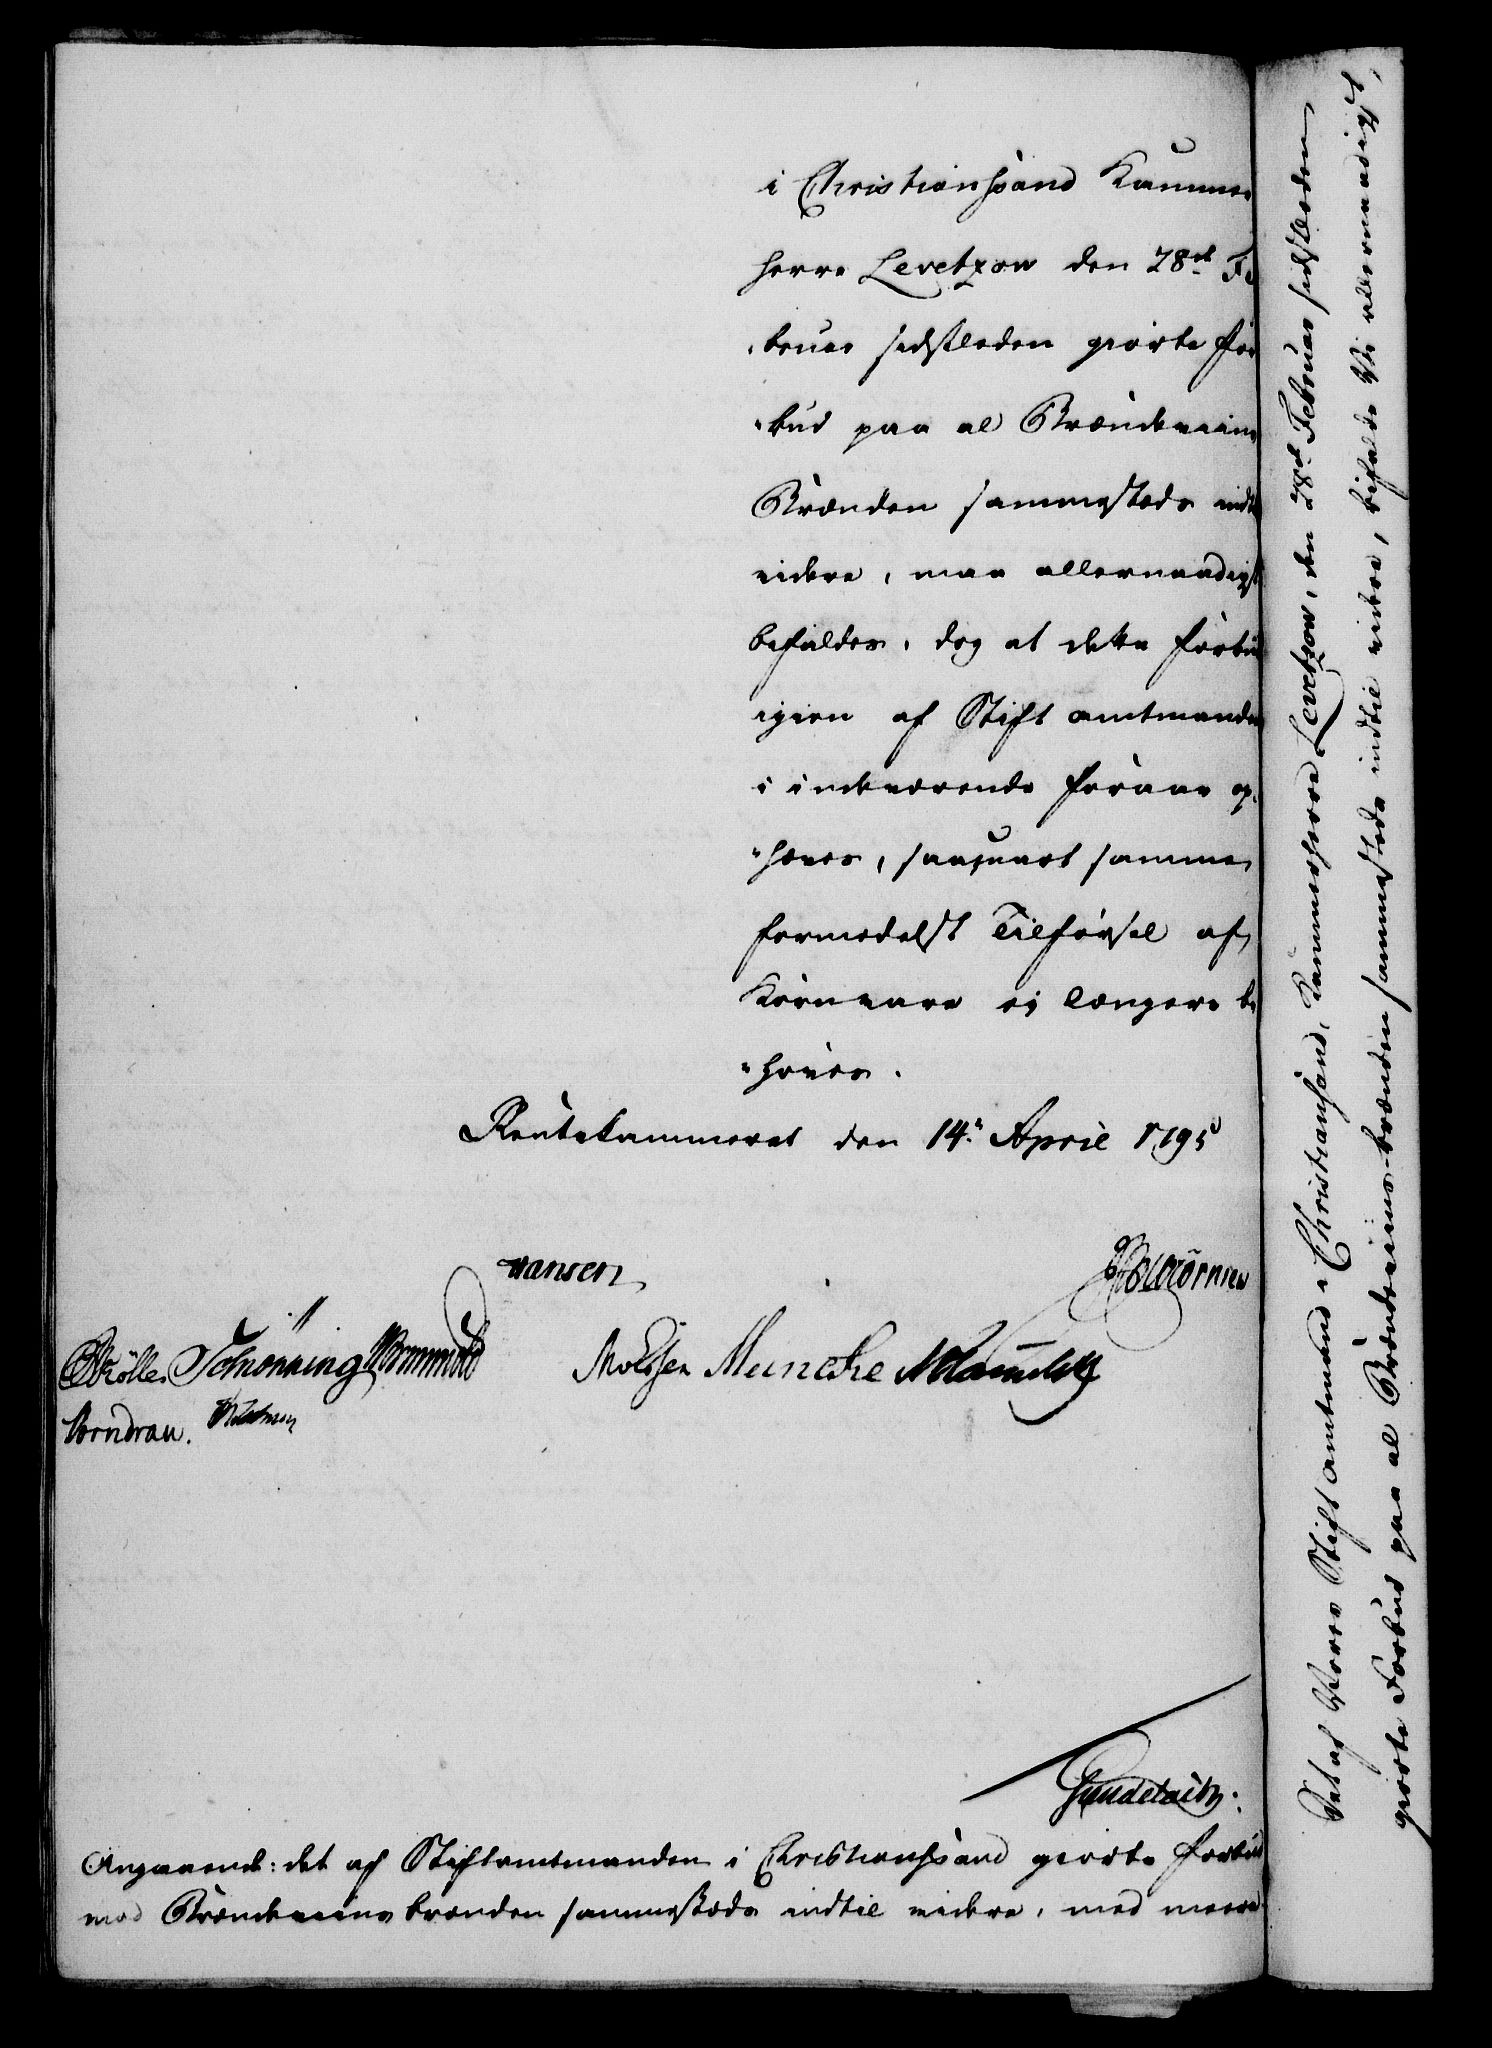 i Christiansand Kammer
herre Levetzow den 28de Fe
bruar sidstleden giorte For
bud paa al Brændeviins
Brænden sammesteds indtil
videre, maa allernaadigst
bifaldes, dog at dette Forbud
igien af Stiftamtmanden
i indeværende Foraar op
hæves, saasnart samme
formedelst Tilførsel af
Kornvare ej længere be
høves.
Rentekammeret den 14de April 1795
Hansen
Møller Schønning Wormskiold Moldsen Muncke
Vorndran.
Gundelach.
Angaaende: det af Stiftamtmanden i Christiansand giorte Forbud
mod Brændeviins brænden sammesteds indtil videre, med meere
Det af Vores Stiftamtmand i Christiansand, Kammerherre Levetzow, den 28de Februar sidstleden
giorte Forbud paa al Brændeviins-brænden sammesteds indtil videre, bifalde Vi allernaadigst,